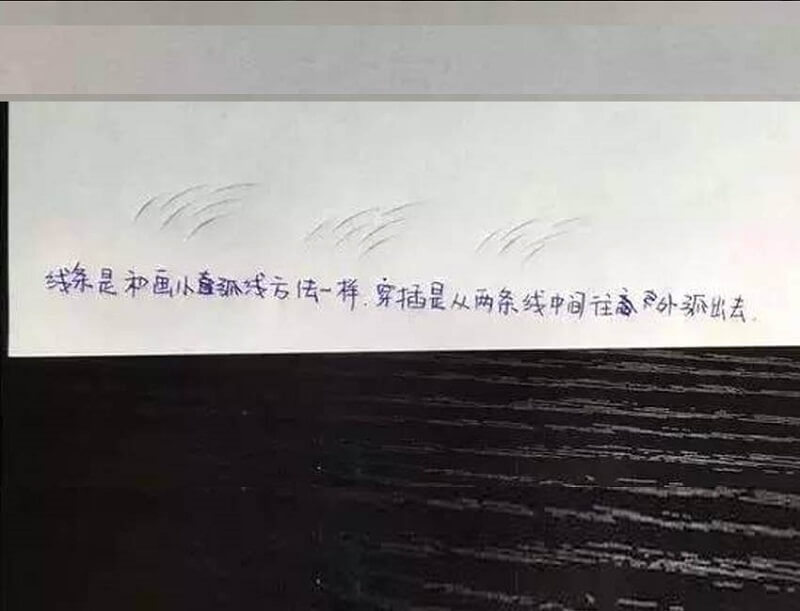 线条是和画小直弧线方法一样.穿插是从两条线中间往外弧出去.